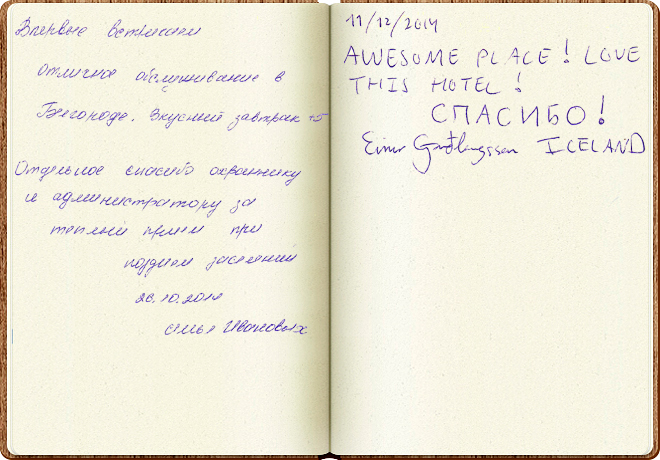 Впервые встречаем
отличное обслуживание в
Белгороде. Вкусный завтрак +5
Отдельное спасибо охраннику
и администратору за
теплый прием при
позднем заселении
26.10.2014
семья Ивановых
11/12/2014
AWESOME PLACE! LOVE
THIS HOTEL!
СПАСИБО!
Einar ICELAND